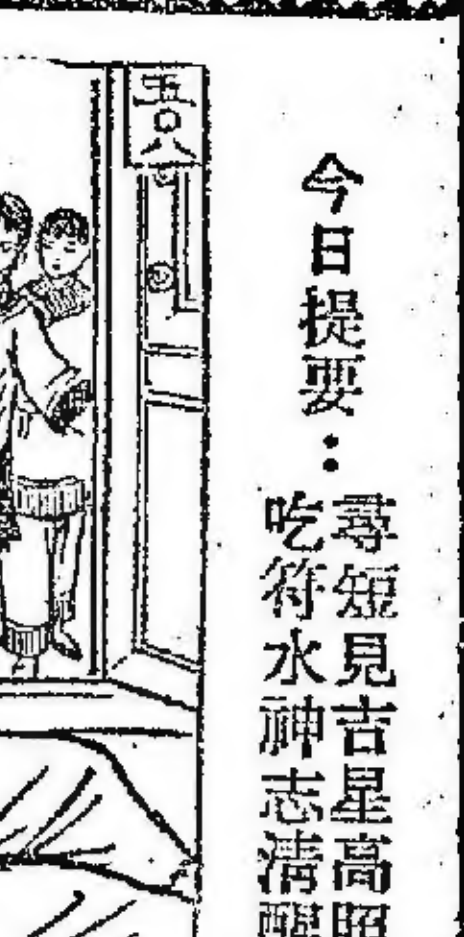 今日提要：
尋短見吉星高照
吃符水神志清醒
五〇八